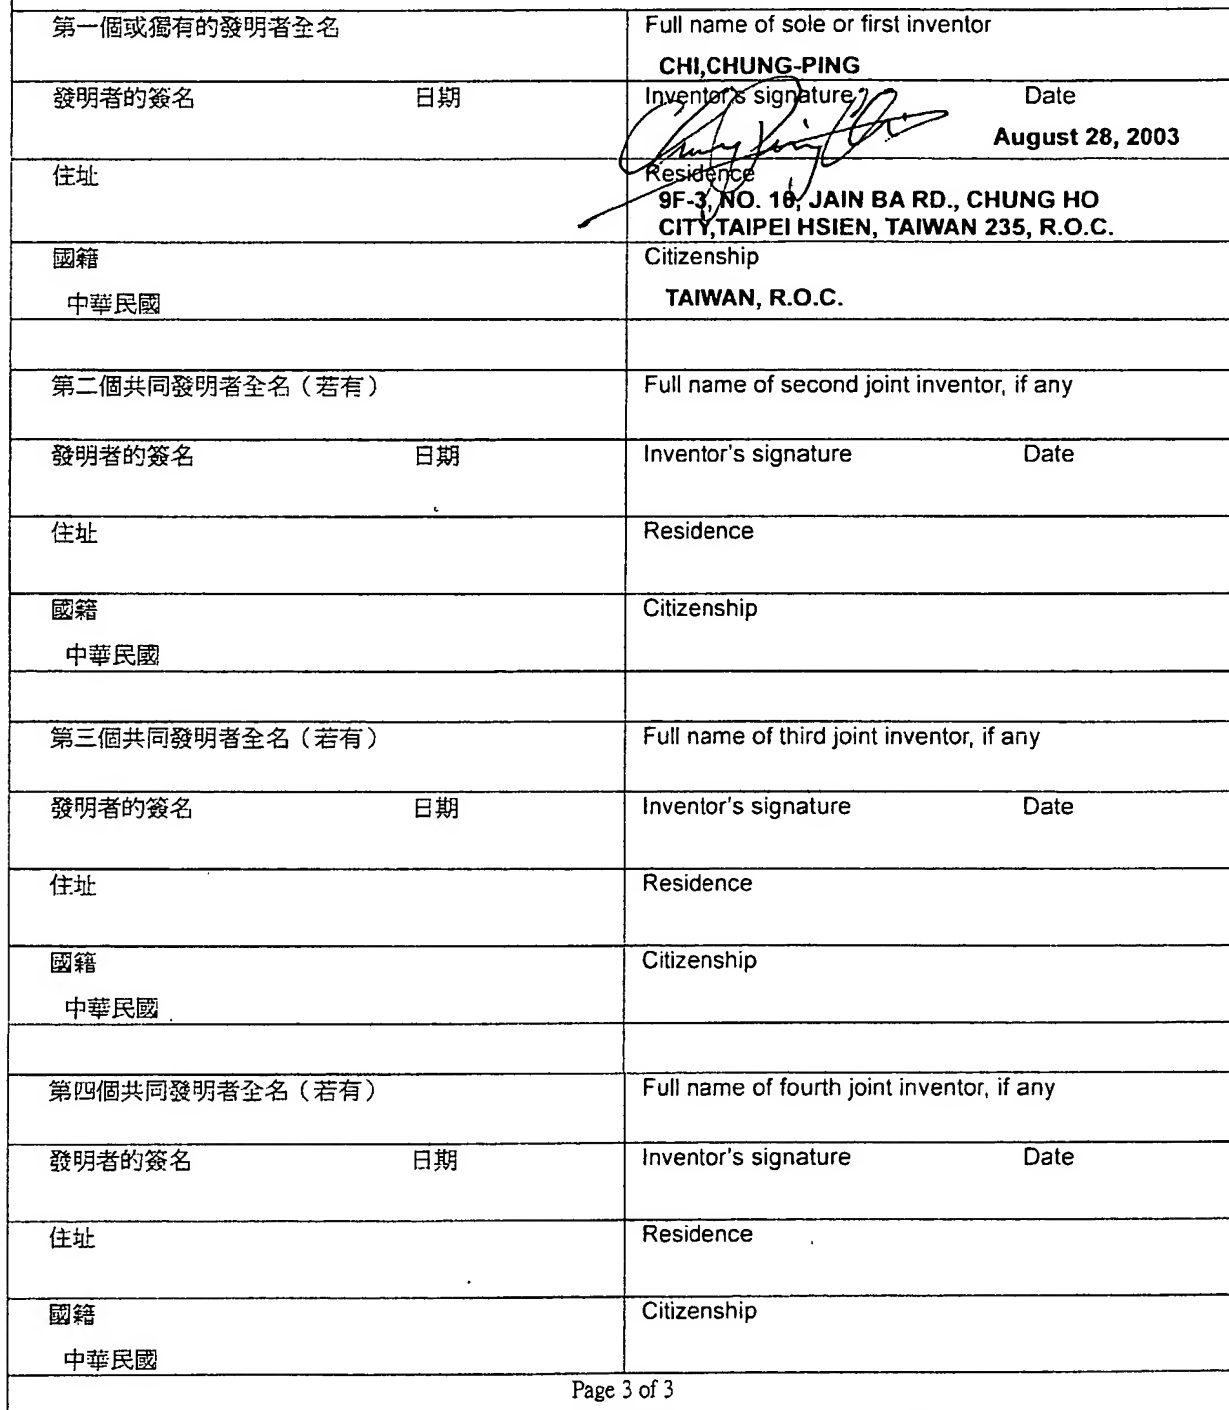 第一個或獨有的發明者全名
Full name of sole or first inventor
CHI,CHUNG-PING
發明者的簽名 日期
Inventor's signature Date
Chung Ping Chi
August 28, 2003
住址
Residence
9F-3, NO. 16, JAIN BA RD., CHUNG HO
CITY,TAIPEI HSIEN, TAIWAN 235, R.O.C.
國籍
中華民國
Citizenship
TAIWAN, R.O.C.
第二個共同發明者全名（若有）
Full name of second joint inventor, if any
發明者的簽名 日期
Inventor's signature Date
住址
Residence
國籍
中華民國
Citizenship
第三個共同發明者全名（若有）
Full name of third joint inventor, if any
發明者的簽名 日期
Inventor's signature Date
住址
Residence
國籍
中華民國
Citizenship
第四個共同發明者全名（若有）
Full name of fourth joint inventor, if any
發明者的簽名 日期
Inventor's signature Date
住址
Residence
國籍
中華民國
Citizenship
Page 3 of 3